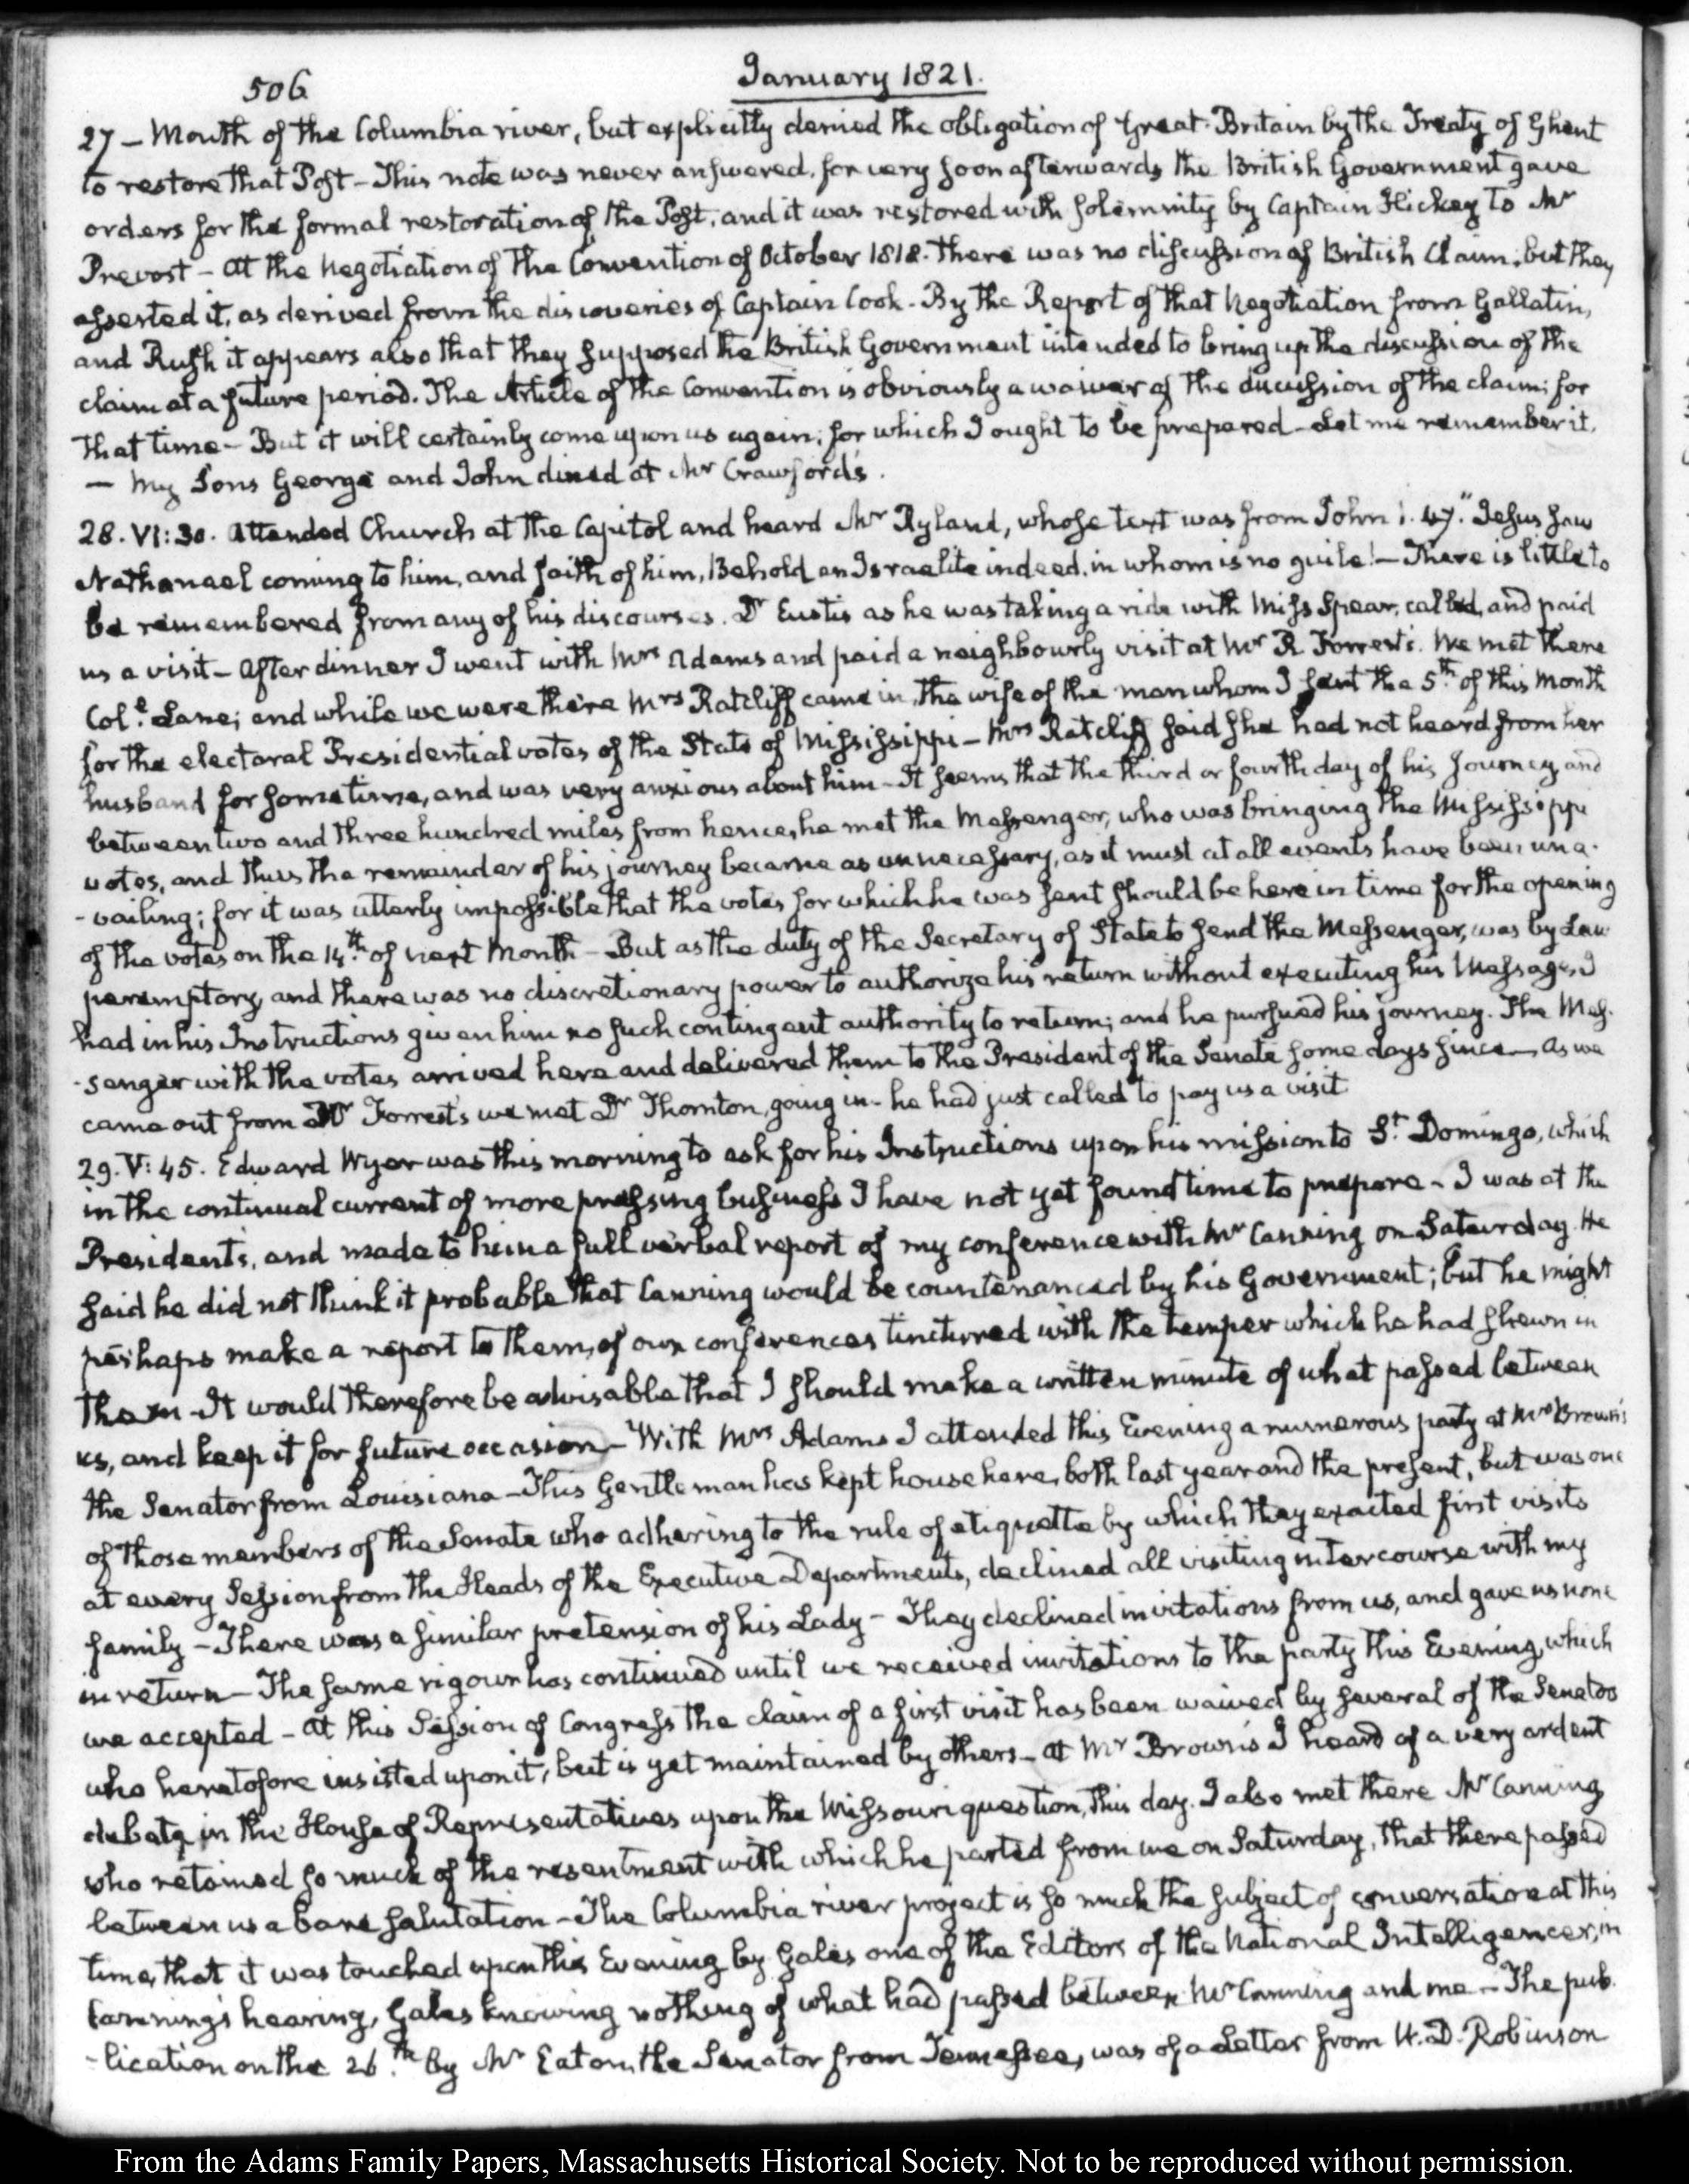 506
January 1821.
27 – Mouth of the Columbia river, but explicitly denied the obligation of Great-Britain by the Treaty of Ghent
to restore that Post – This note was never answered, for very soon afterwards the British Government gave
orders for the formal restoration of the Post, and it was restored with solemnity by Captain Hickey to Mr
Prevost – At the Negotiation of the Convention of October 1818. there was no discussion of British Claim; but they
asserted it, as derived from the discoveries of Captain Cook – By the Report of that Negotiation from Gallatin,
and Rush it appears also that they supposed the British Government intended to bring up the discussion of the
claim at a future period. The Article of the Convention is obviously a waiver of the discussion of the claim; for
that time – But it will certainly come upon us again; for which I ought to be prepared – Let me remember it.
— My Sons George and John dined at Mr Crawford's.
28. VI: 30. Attended Church at the Capitol and heard Mr Ryland, whose text was from John 1. 47. "Jesus saw
Nathanael coming to him, and saith of him, Behold an Israelite indeed, in whom is no guile! – There is little to
be remembered from any of his discourses. Dr Eustis as he was taking a ride with Miss Spear, called, and paid
us a visit – After dinner I went with Mrs Adams and paid a neighbourly visit at Mr R Forrest's. We met there
Coll. Lane; and while we were there Mrs Ratcliff came in, the wife of the man whom I sent the 5th of this Month
for the electoral Presidential votes of the State of Mississippi – Mrs Ratcliff said she had not heard from her
husband for some time, and was very anxious about him – It seems that the third or fourth day of his Journey and
between two and three hundred miles from hence, he met the Messenger, who was bringing the Mississippi
votes, and thus the remainder of his journey became as unnecessary, as it must at all events have been una-
-vailing; for it was utterly impossible that the votes for which he was sent should be here in time for the opening
of the votes on the 14th of next Month – But as the duty of the Secretary of State to send the Messenger, was by Law
peremptory, and there was no discretionary power to authorize his return without executing his Message, I
had in his Instructions given him no such contingent authority to return; and he pursued his journey. The Mes-
-senger with the votes arrived here and delivered them to the President of the Senate some days since – As we
came out from Forrest's we met Dr Thornton, going in – he had just called to pay us a visit
29. V: 45. Edward Wyer was this morning to ask for his Instructions upon his mission to St Domingo, which
in the continual current of more pressing business I have not yet found time to prepare – I was at the
President's, and made to him a full verbal report of my conference with Mr Canning on Saturday. He
said he did not think it probable that Canning would be countenanced by his Government; but he might
perhaps make a report to them, of our conferences tinctured with the temper which he had shewn in
them – It would therefore be advisable that I should make a written minute of what passed between
us, and keep it for future occasion – With Mrs Adams I attended this Evening a numerous party at Mr Brown's
the Senator from Louisiana – This Gentleman has kept house here, both last year and the present, but was one
of those members of the Senate who adhering to the rule of etiquette by which they exacted first visits
at every Session from the Heads of the Executive Departments, declined all visiting intercourse with my
family – There was a similar pretension of his Lady – They declined invitations from us, and gave us none
in return – The same rigour has continued until we received invitations to the party this Evening, which
we accepted – At this Session of Congress the claim of a first visit has been waived by several of the Senators
who heretofore insisted upon it, but is yet maintained by others – At Mr Brown's I heard of a very ardent
debate in the House of Representatives upon the Missouri question, this day. I also met there Mr Canning
who retained so much of the resentment with which he parted from me on Saturday, that there passed
between us a bare salutation – The Columbia river project is so much the subject of conversation at this
time, that it was touched upon this Evening by Gales one of the Editors of the National Intelligencer, in
Canning's hearing, Gales knowing nothing of what had passed between Mr Canning and me – The pub-
-lication on the 26th by Mr Eaton, the Senator from Tennessee, was of a Letter from W. D. Robinson
From the Adams Family Papers, Massachusetts Historical Society. Not to be reproduced without permission.